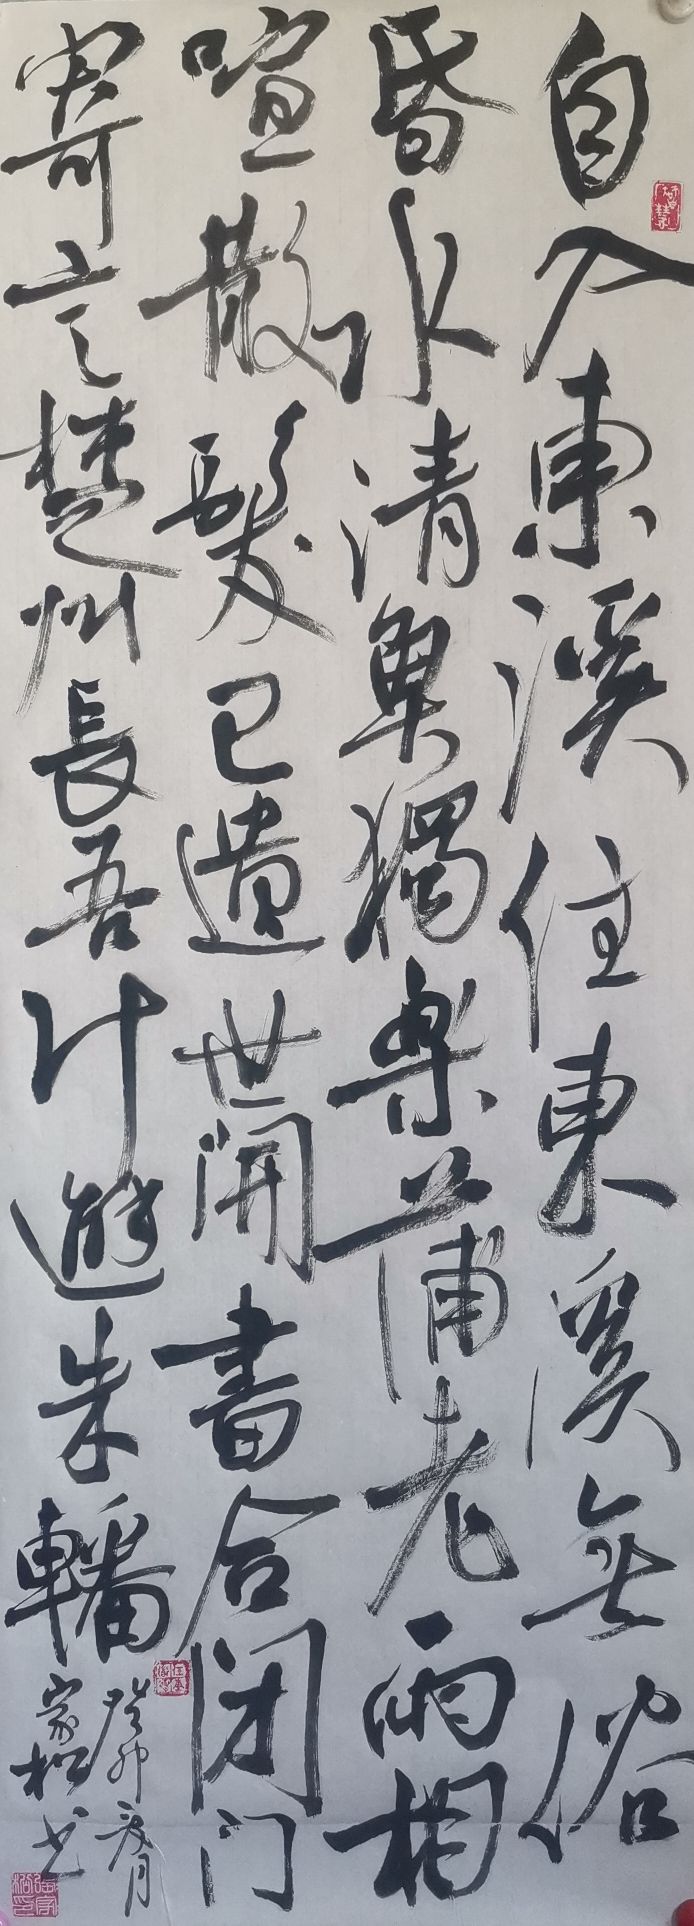 自入東溪住東溪無俗
昏水清魚獨樂蒲老雨相
喧散髮已遺世開書合闭门
寄言楚州長吾計遊朱轓
癸卯夏月
家松书